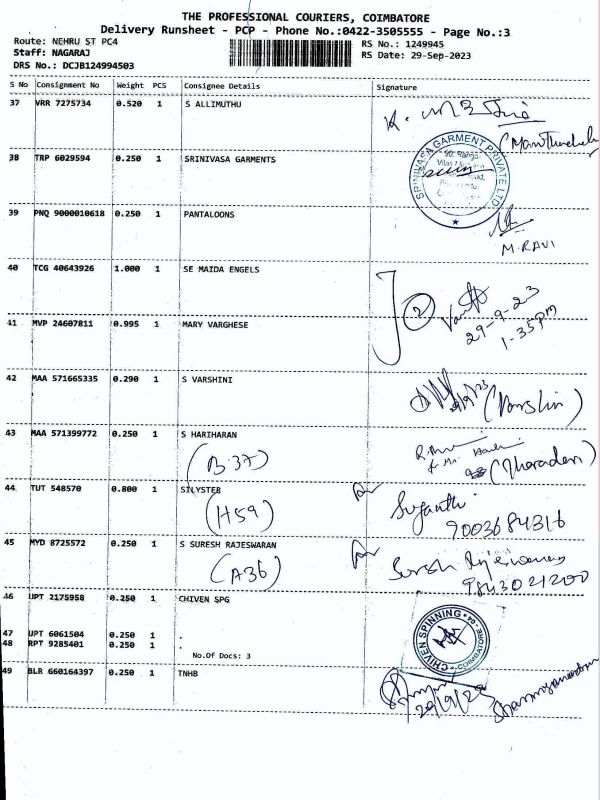 THE PROFESSIONAL COURIERS, COIMBATORE
Delivery Runsheet - PCP - Phone No.:0422-3505555 - Page No.:3
Route: NEHRU ST PC4
Staff: NAGARAJ
DRS No.: DCJB124994503
RS No.: 1249945
RS Date: 29-Sep-2023
S No Consignment No Weight PCS Consignee Details Signature
37 VRR 7275734 0.520 1 S ALLIMUTHU
38 TRP 6029594 0.250 1 SRINIVASA GARMENTS
SRINIVASA GARMENT PRIVATE LTD
39 PNQ 9000010618 0.250 1 PANTALOONS
M.RAVI
40 TCG 40643926 1.000 1 SE MAIDA ENGELS
29-9-23
1-35pm
41 MVP 24607811 0.995 1 MARY VARGHESE
42 MAA 571665335 0.290 1 S VARSHINI
43 MAA 571399772 0.250 1 S HARIHARAN
(B 37)
44 TUT 548570 0.800 1 SILYSTER
(H59)
Suganthi
9003684316
45 MYD 8725572 0.250 1 S SURESH RAJESWARAN
(A36)
Suresh Rajeswaran
9843021200
46 UPT 2175958 0.250 1 CHIVEN SPG
CHIVEN SPINNING
COIMBATORE
47 UPT 6061504 0.250 1 .
48 RPT 9285401 0.250 1 .
No.Of Docs: 3
49 BLR 660164397 0.250 1 TNHB
29/9/23